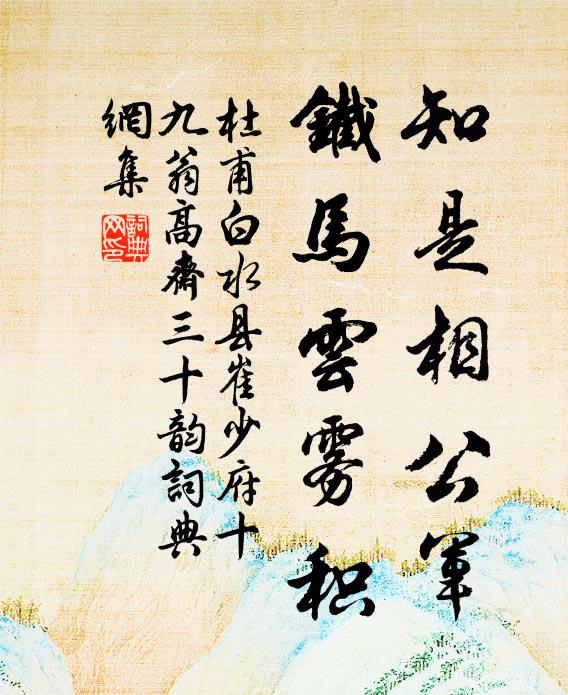 知是相公军
鐵馬雲雾积
杜甫白水县崔少府十
九翁高齋三十韵詞典
網集
詞典
网印